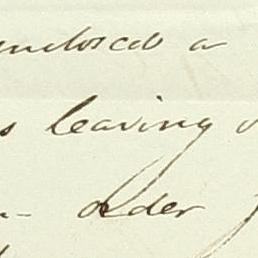 enclosed a
s leaving
older